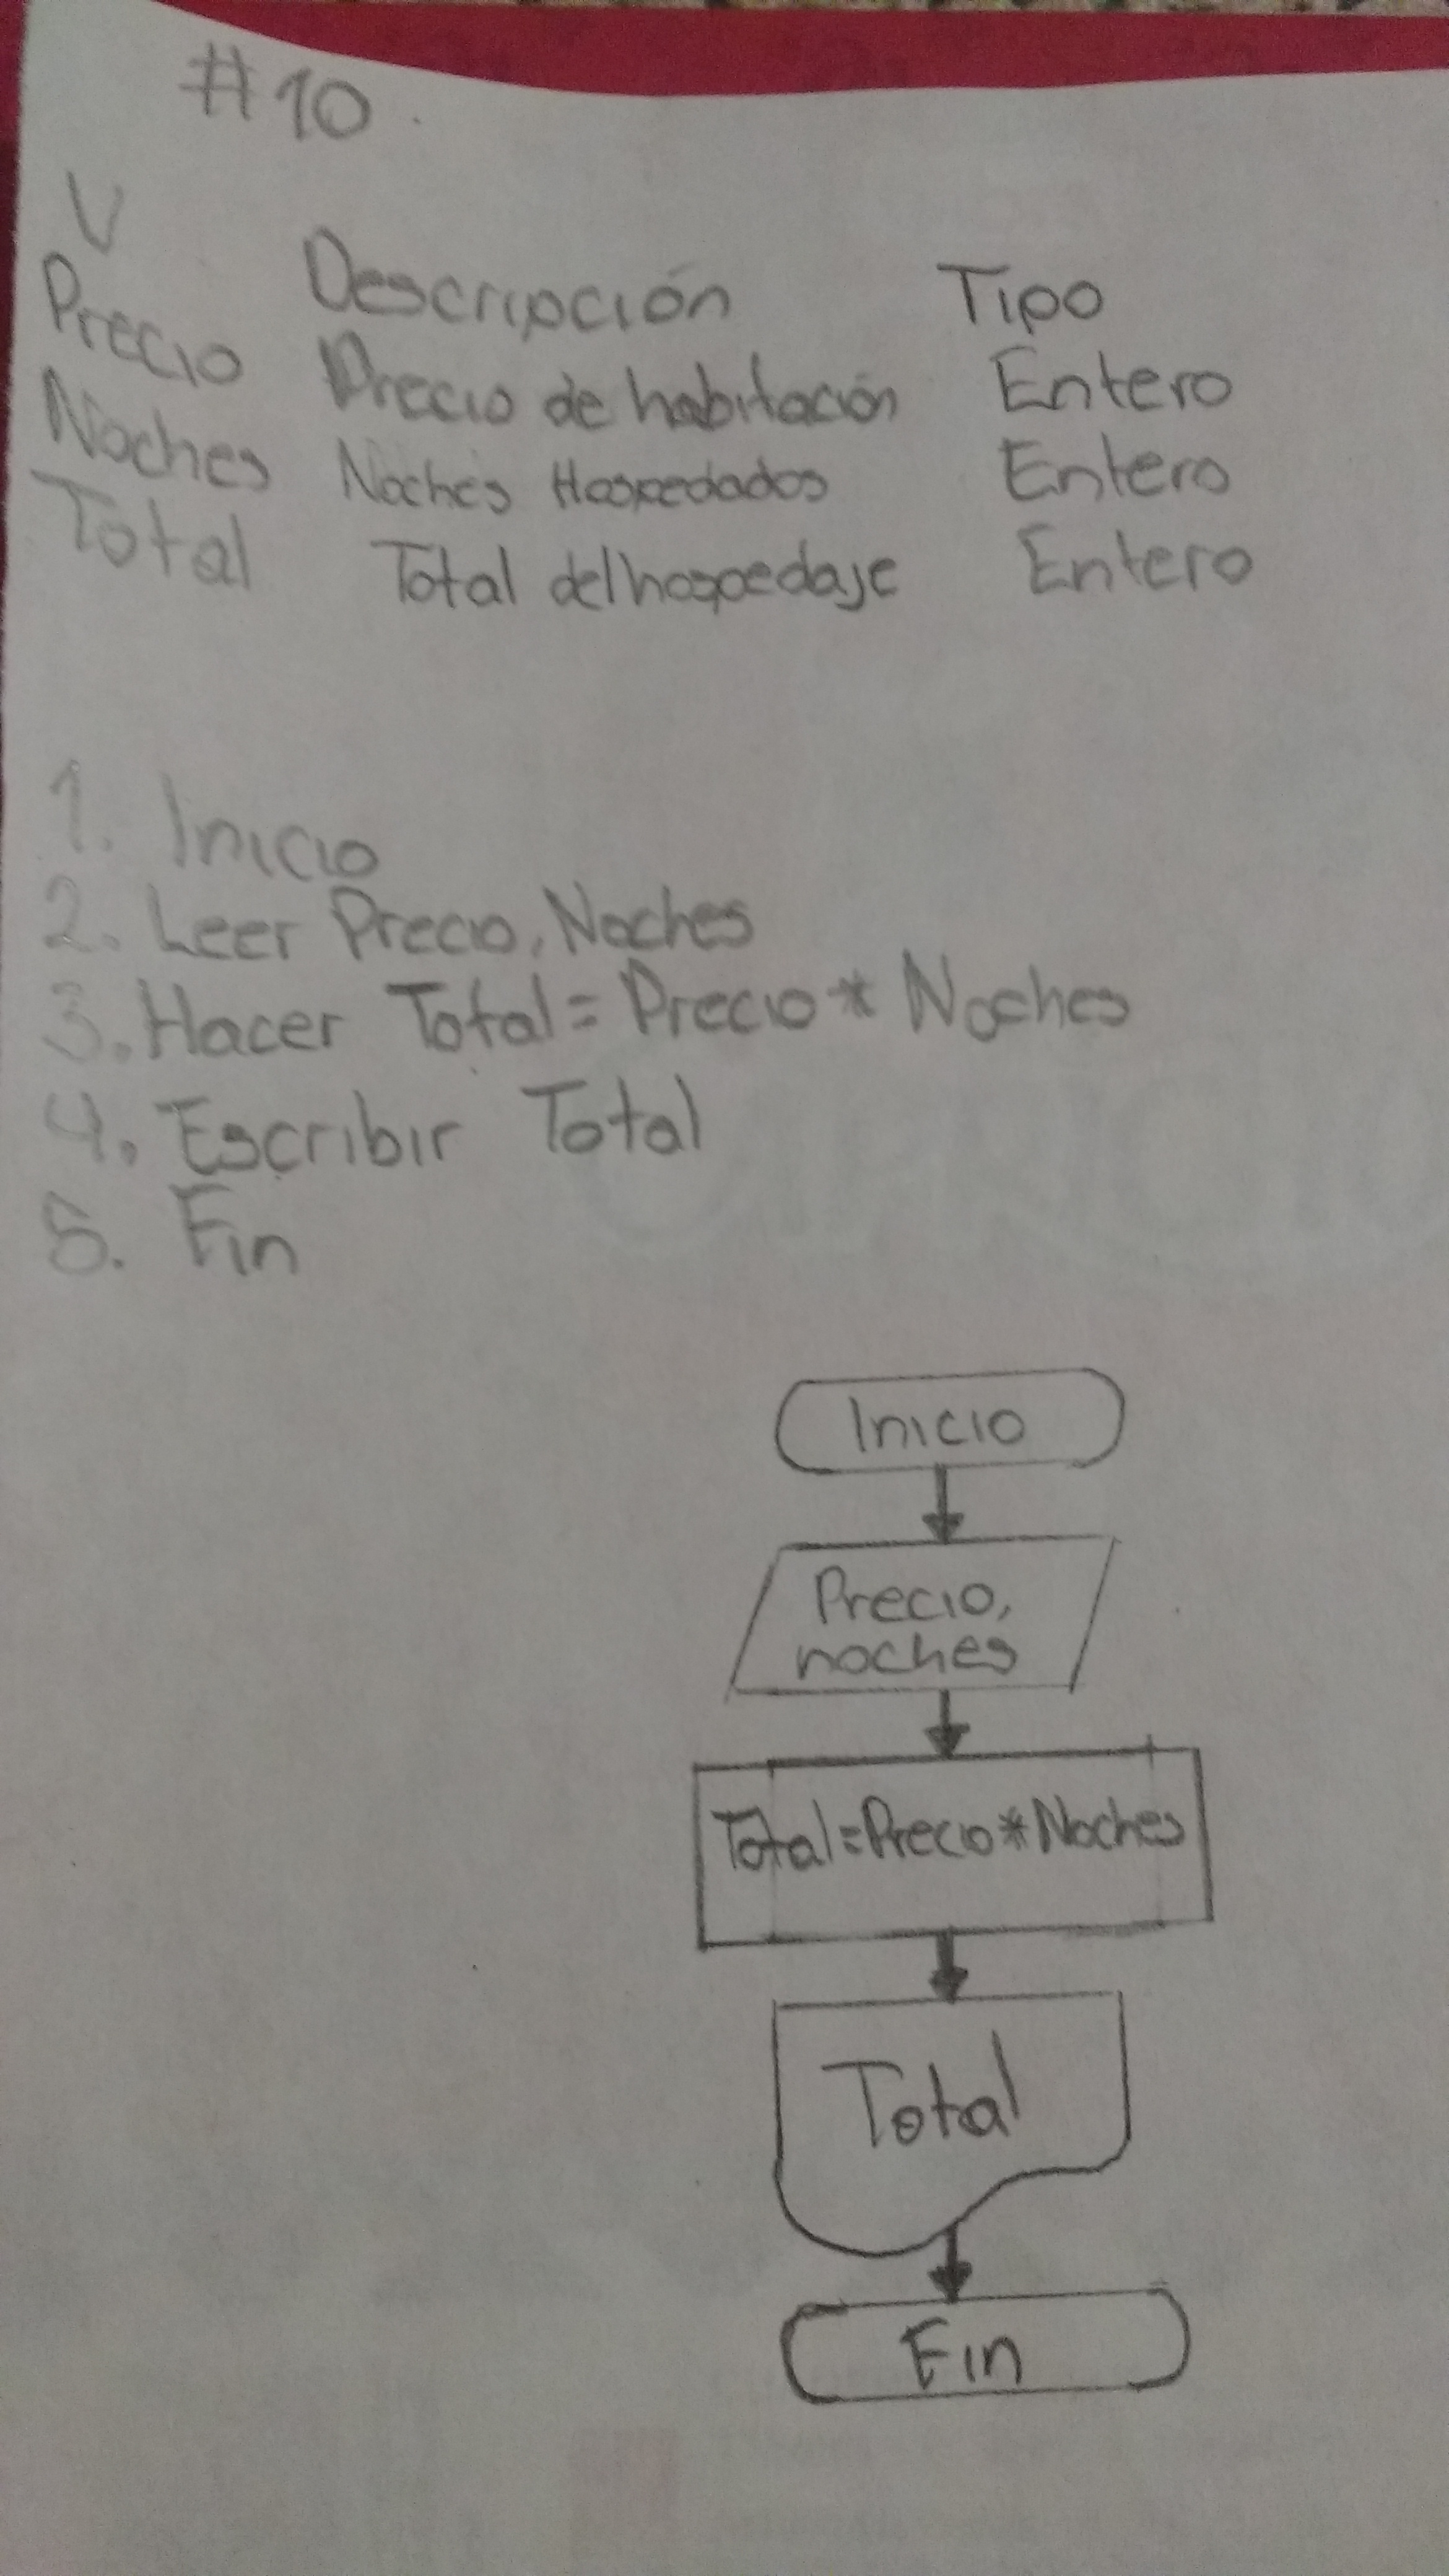 #10
V Descripción Tipo
Precio Precio de habitación Entero
Noches Noches Hospedados Entero
Total Total del hospedaje Entero
1. Inicio
2. Leer Precio, Noches
3. Hacer Total = Precio * Noches
4. Escribir Total
5. Fin
Inicio
Precio,
noches
Total = Precio * Noches
Total
Fin